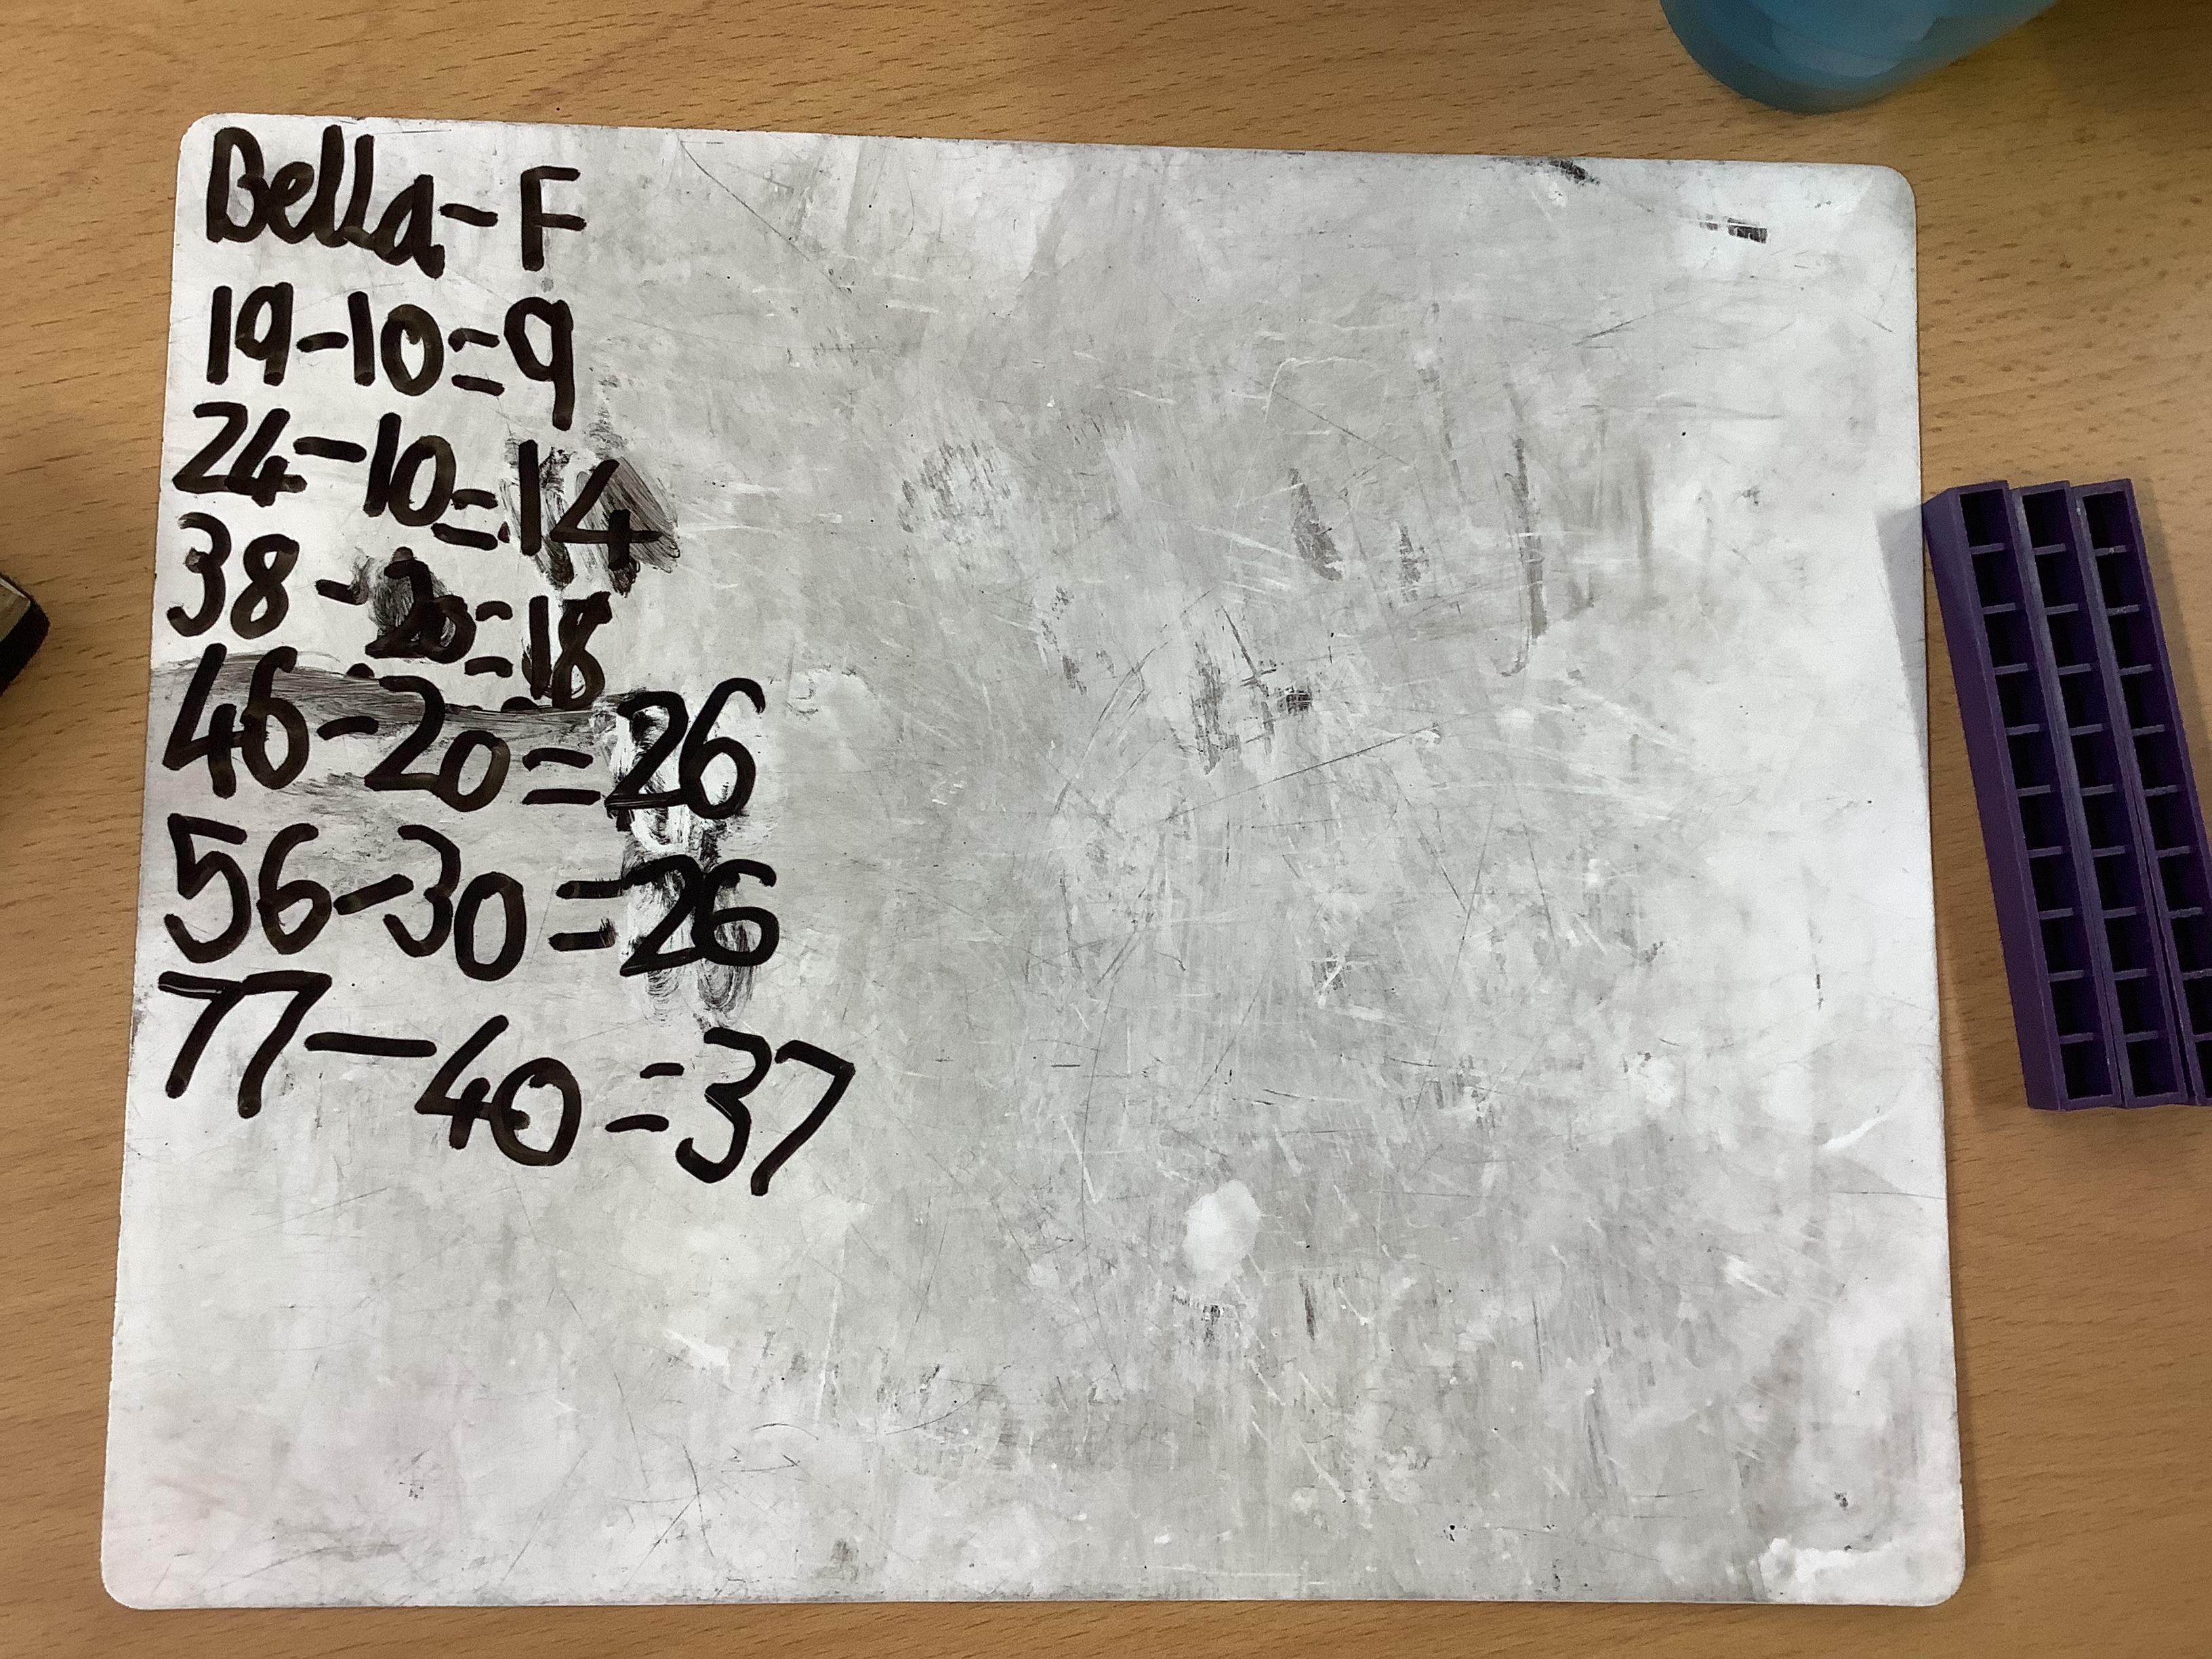 Bella-F
19-10=9
24-10=14
38-20=18
46-20=26
56-30=26
77-40=37